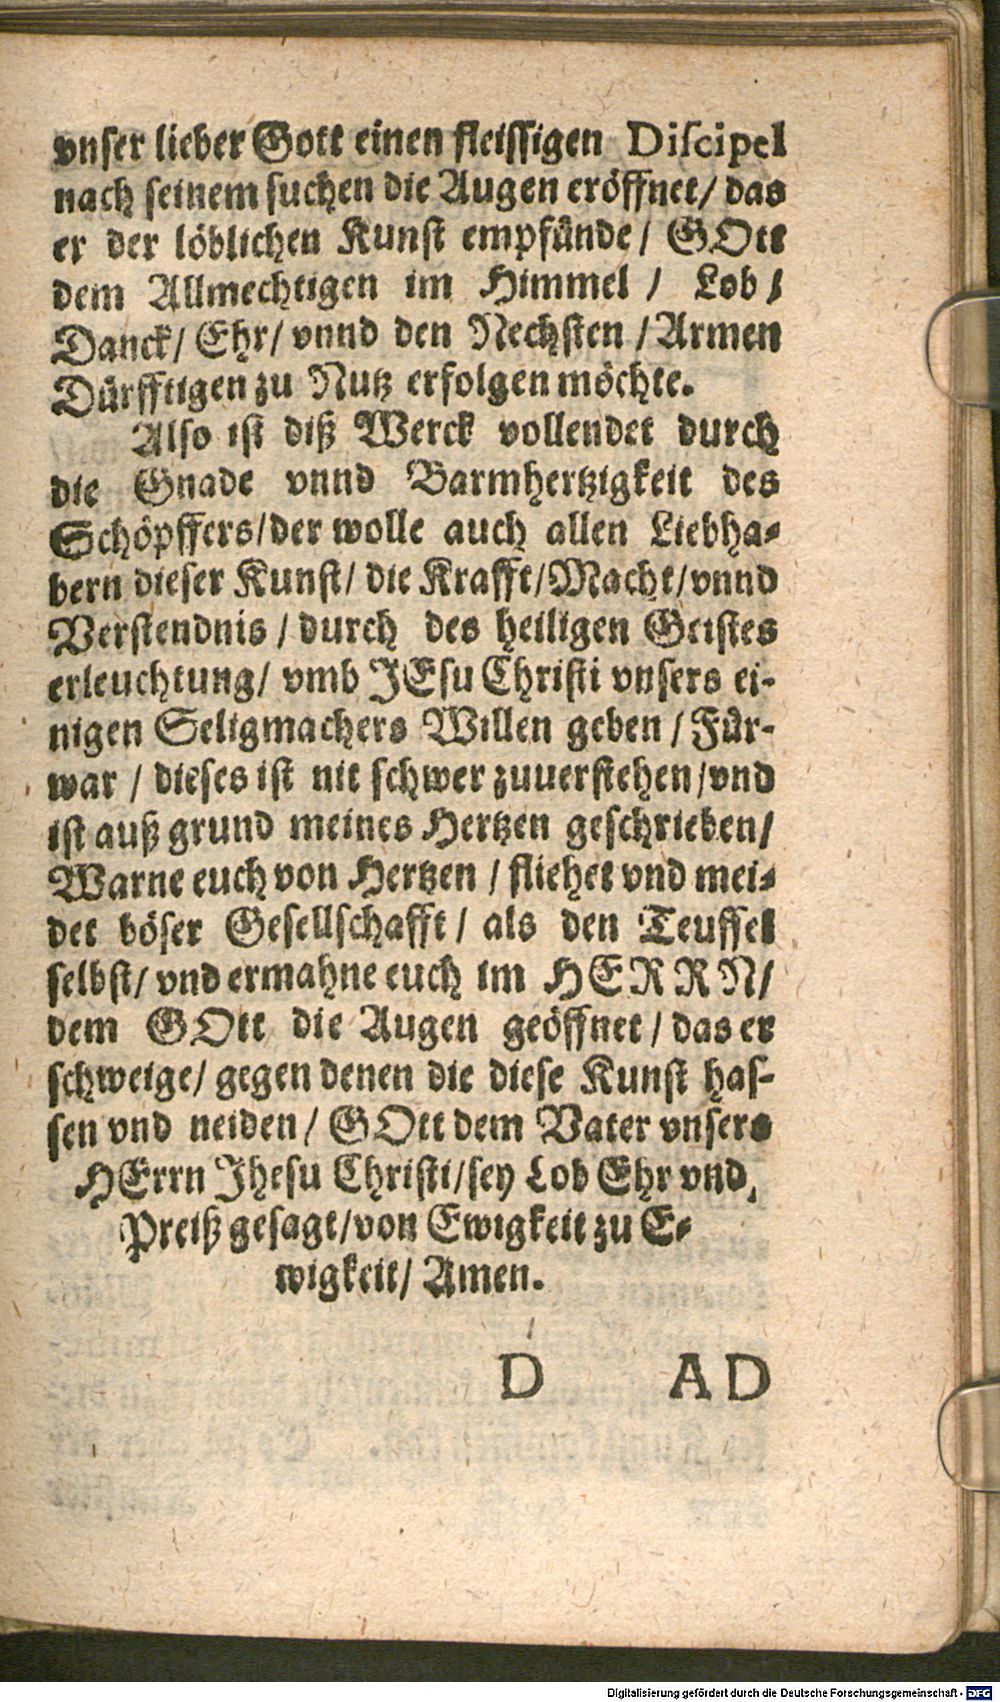 vnser lieber Gott einen fleissigen Discipel
nach seinem suchen die Augen eröffnet/ das
er der löblichen Kunst empfünde/ GOtt
dem Allmechtigen im Himmel / Lob /
Danck/ Ehr/ vnnd den Nechsten / Armen
Dürfftigen zu Nutz erfolgen möchte.
Also ist diß Werck vollendet durch
die Gnade vnnd Barmhertzigkeit des
Schöpffers/der wolle auch allen Liebha-
bern dieser Kunst/ die Krafft/Macht/vnnd
Verstendnis / durch des heiligen Geistes
erleuchtung/ vmb JEsu Christi vnsers ei-
nigen Seligmachers Willen geben / Für-
war / dieses ist nit schwer zuuerstehen/vnd
ist auß grund meines Hertzen geschrieben/
Warne euch von Hertzen / fliehet vnd mei-
det böser Gesellschafft/ als den Teuffel
selbst/ vnd ermahne euch im HERRN/
dem GOtt die Augen geöffnet / das er
schweige/ gegen denen die diese Kunst has-
sen vnd neiden/ GOtt dem Vater vnsers
HErrn Jhesu Christi/sey Lob Ehr vnd
Preiß gesagt/von Ewigkeit zu E-
wigkeit/ Amen.
D AD
Digitalisierung gefördert durch die Deutsche Forschungsgemeinschaft - DFG